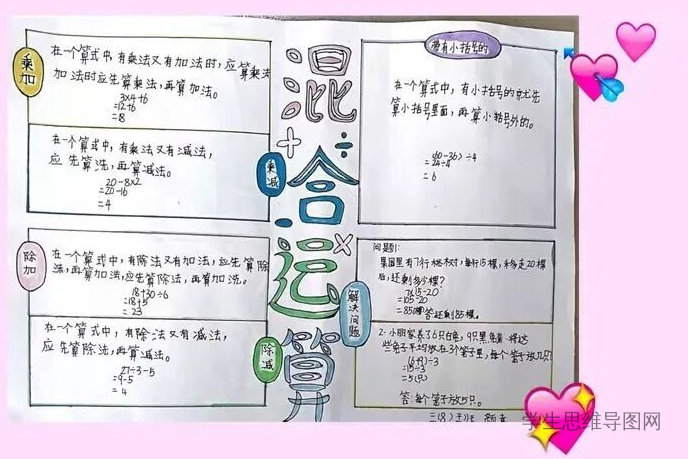 混合运算
乘加
在一个算式中,有乘法又有加法时,应算乘法
加法时应先算乘法,再算加法。
3×4+6
=12+6
=8
乘减
在一个算式中,有乘法又有减法,
应先算洗,再算减法。
20-8×2
=20-16
=4
除加
在一个算式中,有除法又有加法,应先算除
法,再算加法,应先算除法,再算加洗。
18+30÷6
=18+5
=23
除减
在一个算式中,有除法又有减法,
应先算除法,再算减法。
27÷3-5
=9-5
=4
带有小括号的
在一个算式中,有小括号的就优先
算小括号里面,再算小括号外的。
(60-36)÷4
=24÷4
=6
解决问题
问题1:
果园里有7行桃树,每行15棵,移走20棵
后,还剩多少棵?
7×15-20
=105-20
=85(棵)答还剩85棵。
2.小明家养了6只白兔,9只黑兔,将这
些兔子平均放在3个笼子里,每个笼子放几只?
(6+9)÷3
=15÷3
=5(只)
答:每个笼子放5只。
三(8)班
学生思维导图网